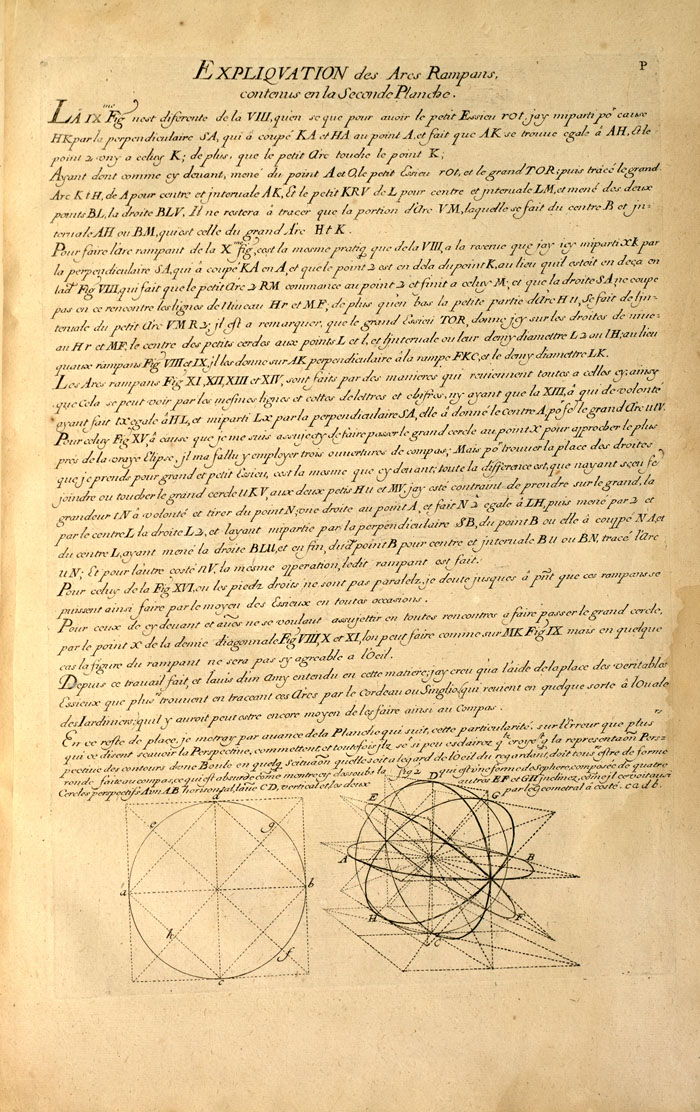 P
EXPLIQVATION des Arcs Rampans,
contenus en la Seconde Planche.
LA IX me Fig nest diferente de la VIII, qu'en se que pour auoir le petit Essieu rot, jay miparti po cause
HK par la perpendiculaire SA, qui à coupé KA et HA au point A, et fait que AK se trouue egale à AH, Et le
point 2 uny a celuy K; de plus, que le petit Arc touche le point K;
Ayant dont comme cy deuant, mené du point A et Q le petit Essieu rot, et le grand TOR; puis tracé le grand
Arc KtH, de A pour centre et jnteruale AK, Et le petit KRV de L pour centre et jnteruale LM, et mené des deux
points BL, la droite BLV, Il ne restera à tracer que la portion d'Arc VM, laquelle se fait du centre B et jn-
teruale AH ou BM, qui est celle du grand Arc HtK.
Pour faire l'arc rampant de la X me fig, cest la mesme pratiq que de la VIII, a la reserue que jay icy miparti xk par
la perpendiculaire SA, qui à coupé KA en A, et que le point 2 est en dela du point K, au lieu quil estoit en deça en
lad Fig VIII, qui fait que le petit Arc 2 RM commance au point 2 et finit a celuy M; et que la droite SA ne coupe
pas en ce rencontre les lignes de Niueau Hr et MF, de plus qu'en bas la petite partie d'Arc Hu, se fait de l'jn-
teruale du petit Arc VMR2; jl est a remarquer, que le grand Essieu TOR, donne jcy sur les droites de niue-
au Hr et MF, le centre des petits cercles aux points L et l, et l'jnteruale ou leur demy diamettre L2 ou lH; au lieu
qu'aux rampans Fig VIII et IX, jl les donne sur AK perpendiculaire à la rampe FKC, et le demy diamettre LK.
Les Arcs rampans Fig XI, XII, XIII et XIV, sont faits par des manieres qui reuiennent toutes a celles cy; ainsy
que Cela se peut voir par les mesmes lignes et cottes de lettres et chifres, ny ayant que la XIII, à qui de volonté
ayant fait tx egale à HL, et miparti Lx par la perpendiculaire SA, elle à donné le Centre A, po fe le grand Arc utV.
Pour celuy Fig XV, à cause que je me suis assujecty de faire passer le grand cercle au point x pour approcher le plus
prés de la vraye Elipse, jl ma fallu y employer trois ouuertures de compas; Mais po trouuer la place des droites
que je prends pour grand et petit Essieu, cest la mesme que cy deuant; toute la difference est, que nayant sçeu fe
joindre ou toucher le grand cercle uKV, aux deux petis Hu et MV, jay esté contraint de prendre sur le grand, la
grandeur tN à volonté et tirer du point N; une droite au point A, et fait N2 egale à LH, puis mené par 2 et
par le centre L la droite L2, et layant mipartie par la perpendiculaire SB, du point B ou elle à couppé NA, et
du centre L, ayant mené la droite BLU, et en fin, dud point B pour centre et jnteruale BU ou BN, tracé l'Arc
UN; Et pour l'autre costé nV, la mesme opperation, ledit rampant est fait.
Pour celuy de la Fig XVI, ou les piedz droits ne sont pas paralelz, je doute jusques à pnt que ces rampans se
puissent ainsi faire par le moyen des Essieux en toutes occasions.
Pour ceux de cy deuant et aues ne se voulant assujettir en toutes rencontres a faire passer le grand cercle,
par le point x de la demie diagonnale Fig VIII, X et XI, lon peut faire comme sur MK Fig IX mais en quelque
cas la figure du rampant ne sera pas sy agreable a l'Oeil.
Depuis ce trauail fait, et lauis d'un Amy entendu en cette matiere; jay creu qu'a l'aide de la place des veritables
Essieux que plus rs trouuent en traceant ces Arcs par le Cordeau ou Singlio, qui reuient en quelque sorte à l'Ouale
des Jardiniers: qu'il y auroit peut estre encore moyen de les faire ainsi au Compas.
En ce reste de place, je mettray par auance de la Planche qui suit, cette particularité. sur l'erreur que plus rs
qui ce disent scauoir la Perspectiue, commettent, et toutesfois jlz se si peu esclairez q lz croye t q la representaon Pers-
pectiue des contours d'une Boule en quelq scituaon quelle soit a legard de l'oeil du regardant, doit tous rs estre de forme
ronde faite au compas, ce qui est absurde come montre cy dessoubs la fig 2 qui est une forme de sphere, composée de quatre
Cercles perspectifs A'un AB horisontal, l'aue CD, vertical et les deux autres EF et GH jnclinez, come jl ce voit aussi
par le Geometral à costé. c a d b.
d
e
g
a
b
h
f
c
D
E
G
A
B
H
F
C